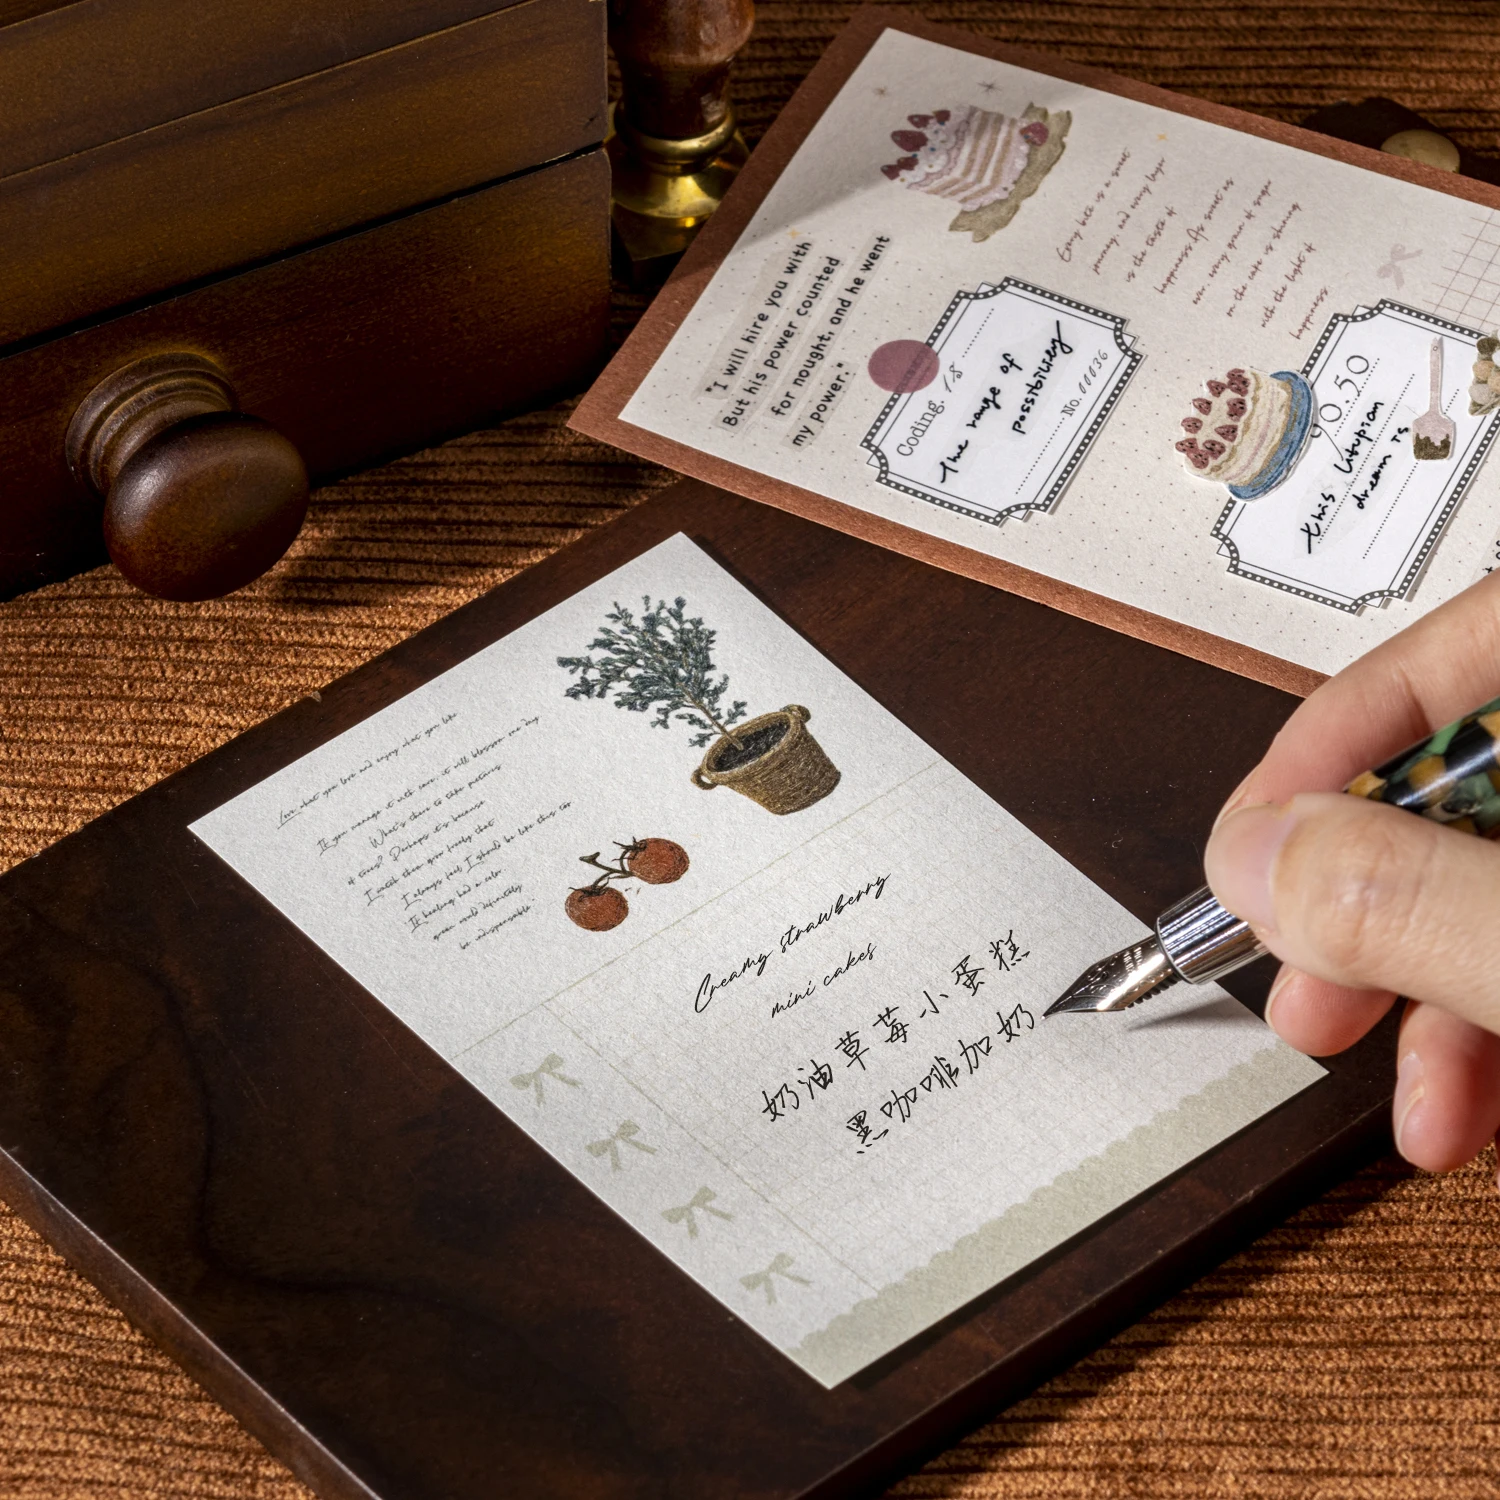 Love what you love and enjoy what you like
If you manage it with care, it will blossom one day
What's there to take pictures
of trees? Perhaps it's because
I watch them grow freely that
I always feel I should be like this too
If healing had a color
green would definitely
be indispensable.
Creamy strawberry
mini cakes
奶油草莓小蛋糕
黑咖啡加奶
"I will hire you with
But his power counted
for nought, and he went
my power."
Every bite is a sweet
journey, and every layer
is the taste of
happiness. As sweet as
ever, every grain of sugar
on the cake is shining
with the light of
happiness.
Coding. 18
The range of
possibility
No. 00036
0.50
this Utopian
dream is